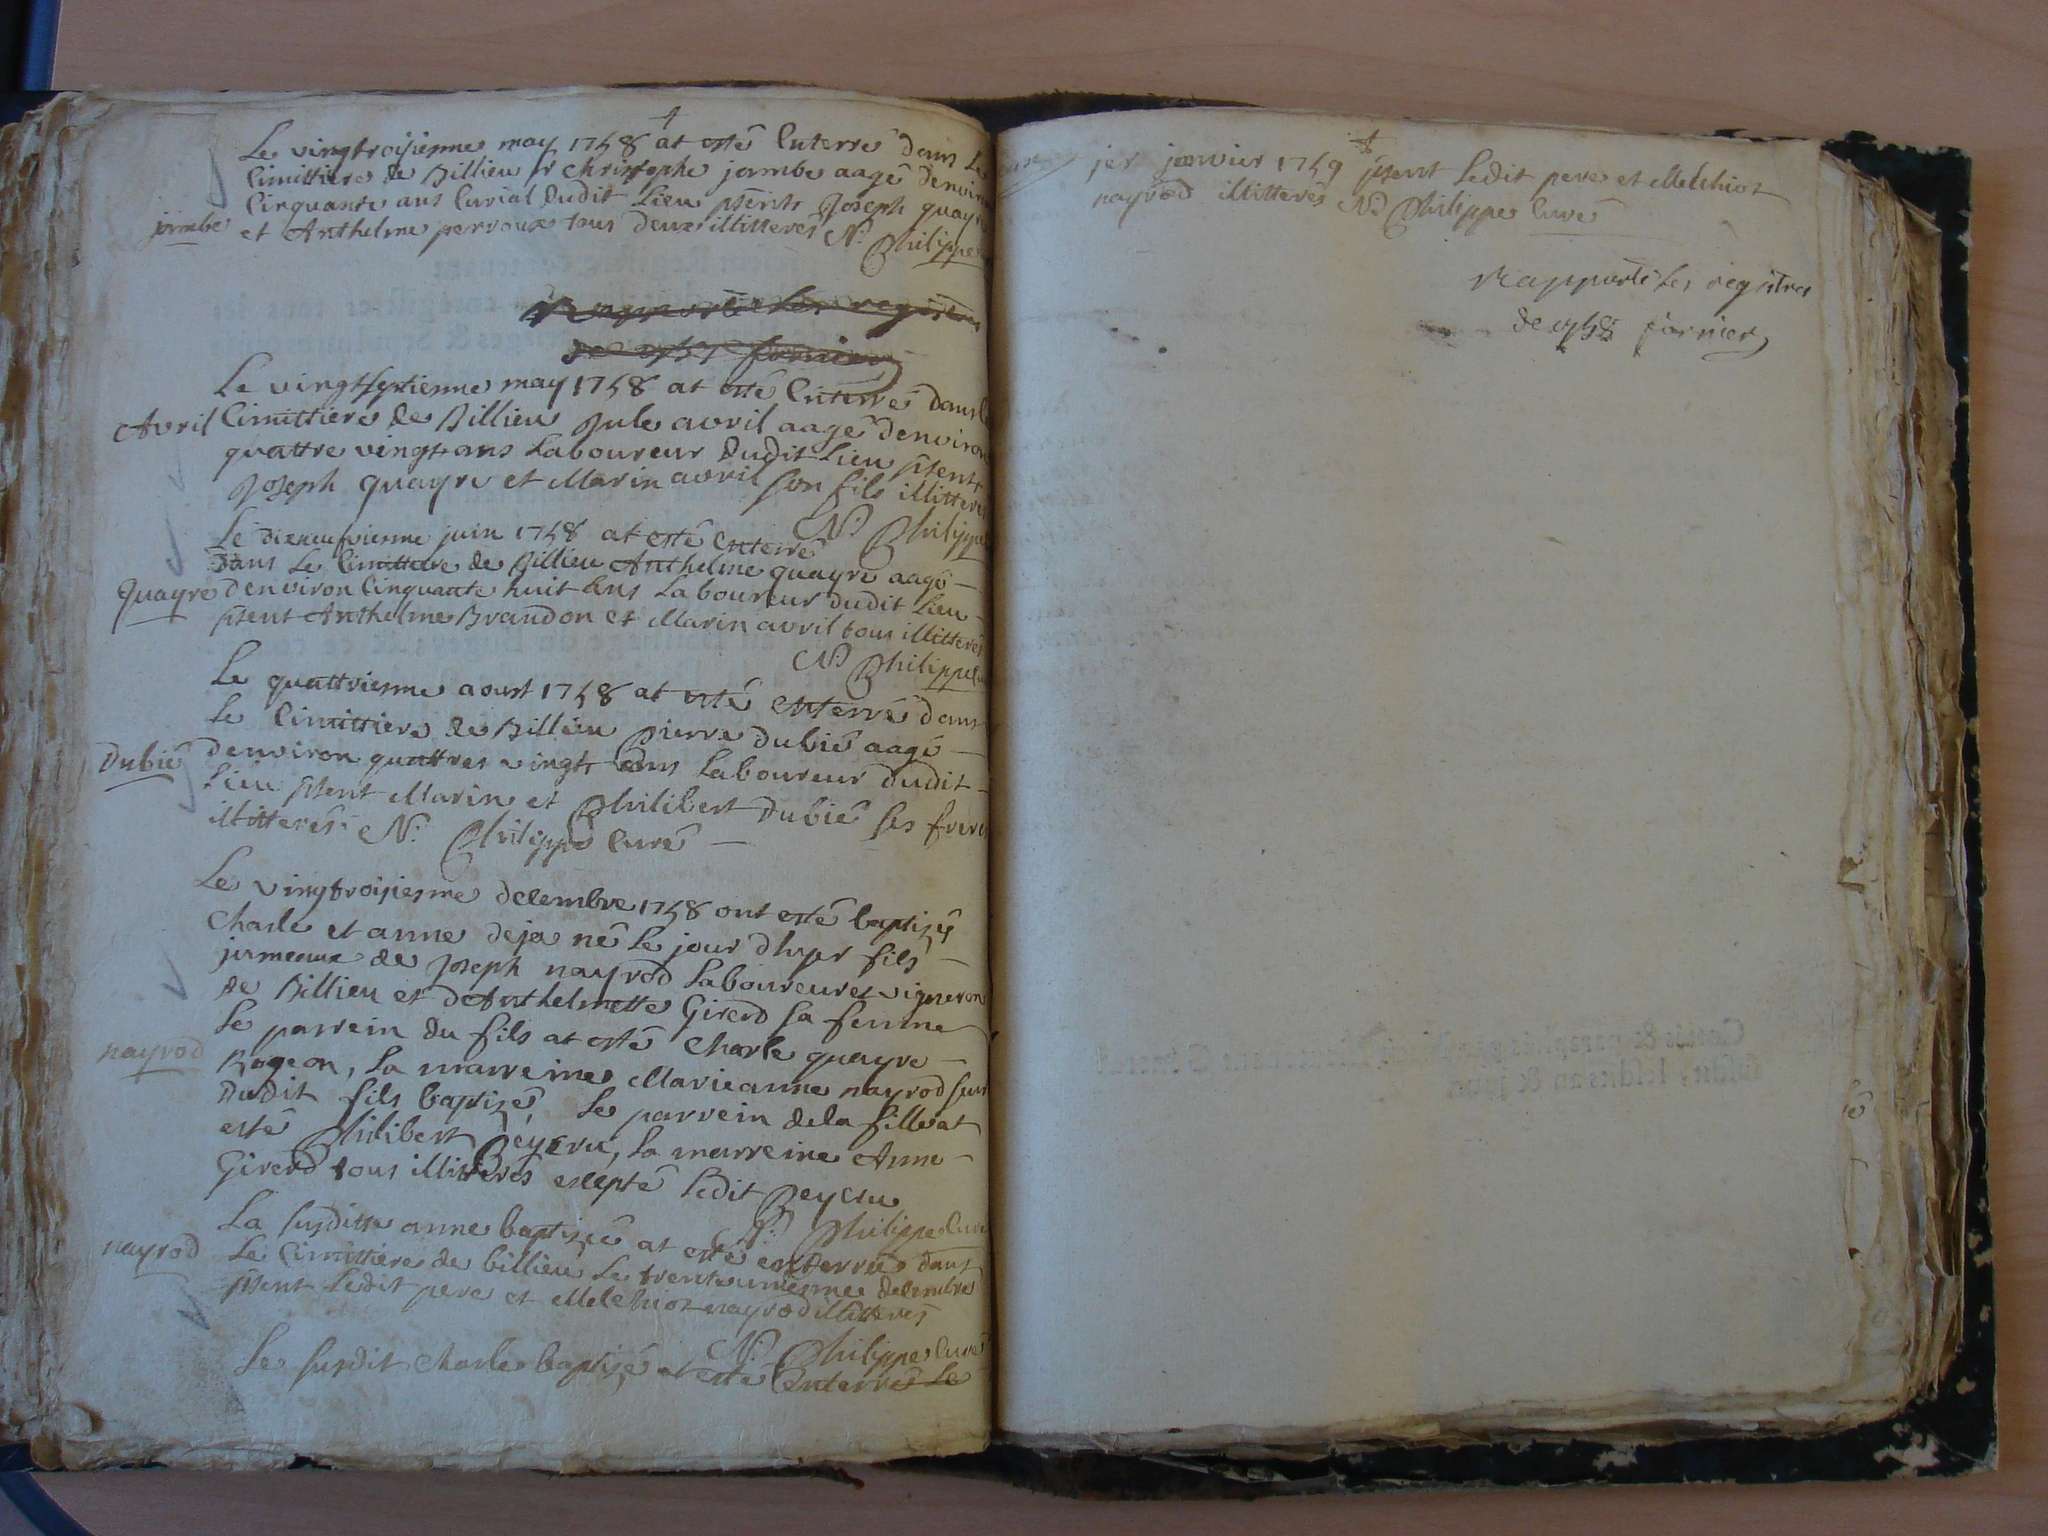 Le vingtroisiesme may 1758 at esté Enterré dans Le
Cimittiere de Billieu sr Christophe jambe aagé denviron
jambe
Cinquante ans Curial dudit Lieu pnts Joseph quayre
et Anthelme perroux tous deux illitteres N: Philippe
Rapporté les registres
de 1757 fornier
Le vingtseptiesme may 1758 at esté Enterré dans le
Avril
Cimittiere de Billieu Jule avril aagé denviron
quattre vingt ans Laboureur dudit Lieu pnts
Joseph quayre et Marin avril son fils illitteres
N: Philippe
Le dixneufviesme juin 1758 at esté enterré
dans Le Cimittiere de Billieu Anthelme quayre aagé
Quayre
denviron Cinquante huit ans Laboureur dudit Lieu
pnt Anthelme Brandon et Marin avril tous illitterés
N: Philippe
Le quattriesme aoust 1758 at esté enterré dans
Le Cimittiere de Billieu pierre dubié aagé
Dubié
denviron quattres vingt ans Laboureur dudit
Lieu pnt Marin et Philibert dubié ses freres
illitterés N: Philippe Curé
Le vingtroisiesme decembre 1758 ont esté baptisés
Charle et anne deja né Le jour dhyer fils
jumeaux de Joseph nayrod Laboureur et vigneron
de Billieu et dAnthelmette Girerd sa femme
nayrod
Le parrein du fils at esté Charle quayre
Rogeon, La marreine Marieanne nayrod seur
dudit fils baptisé, Le parrein de la fille at
esté Philibert Beyeru, La marreine Anne
Girerd tous illitterés excepté Ledit Beyeru
N: Philippe Curé
nayrod
La susditte anne baptisée at esté enterrée dans
Le Cimittiere de billieu Le trenteuniesme decembre
pnt Ledit pere et Melchiot nayrod illitterés
N: Philippe Curé
Le susdit Charle baptisé at esté Enterré Le
1er janvier 1759 pnt Ledit pere et Melchiot
nayrod illitterés N: Philippe Curé
Rapporté les registres
de 1758 fornier